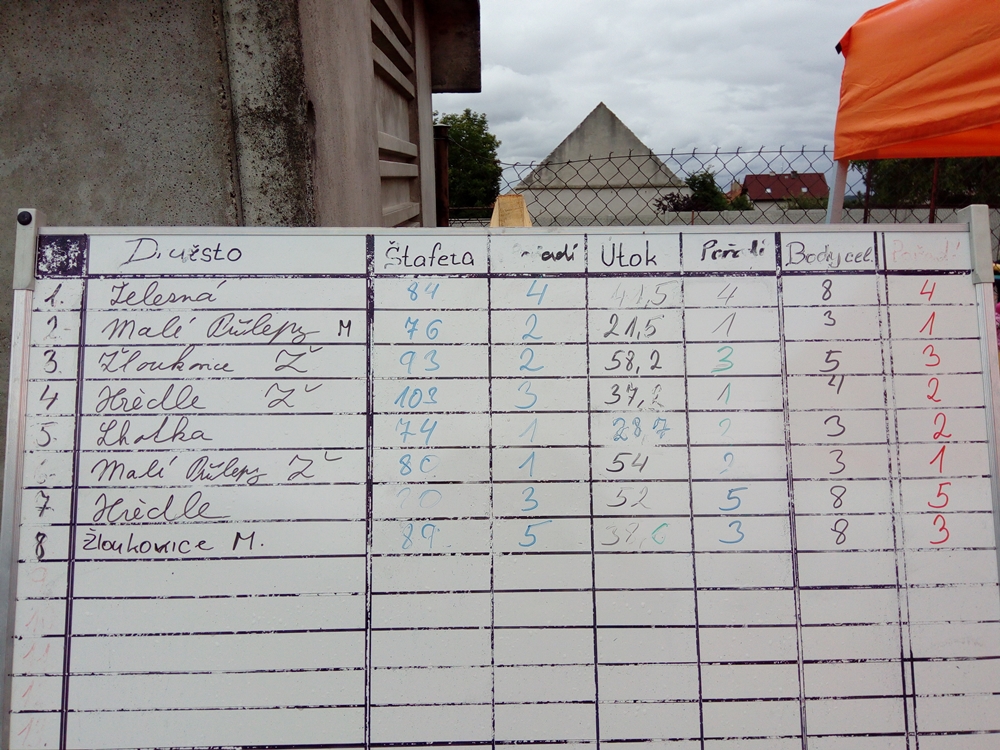 Družsto Štafeta Útok Pořadí Body cel. Pořadí
1. Zelesná 84 4 41,5 4 8 4
2 Malé Přílepy M 76 2 21,5 1 3 1
3. Žloukovice Ž 93 2 58,2 3 5 3
4 Hředle Ž 103 3 37,2 1 4 2
5. Lhotka 74 1 28,7 2 3 2
Malé Přílepy Ž 80 1 54 2 3 1
7 Hředle 3 52 5 8 5
8 Žloukovice M. 89 5 39,6 3 8 3